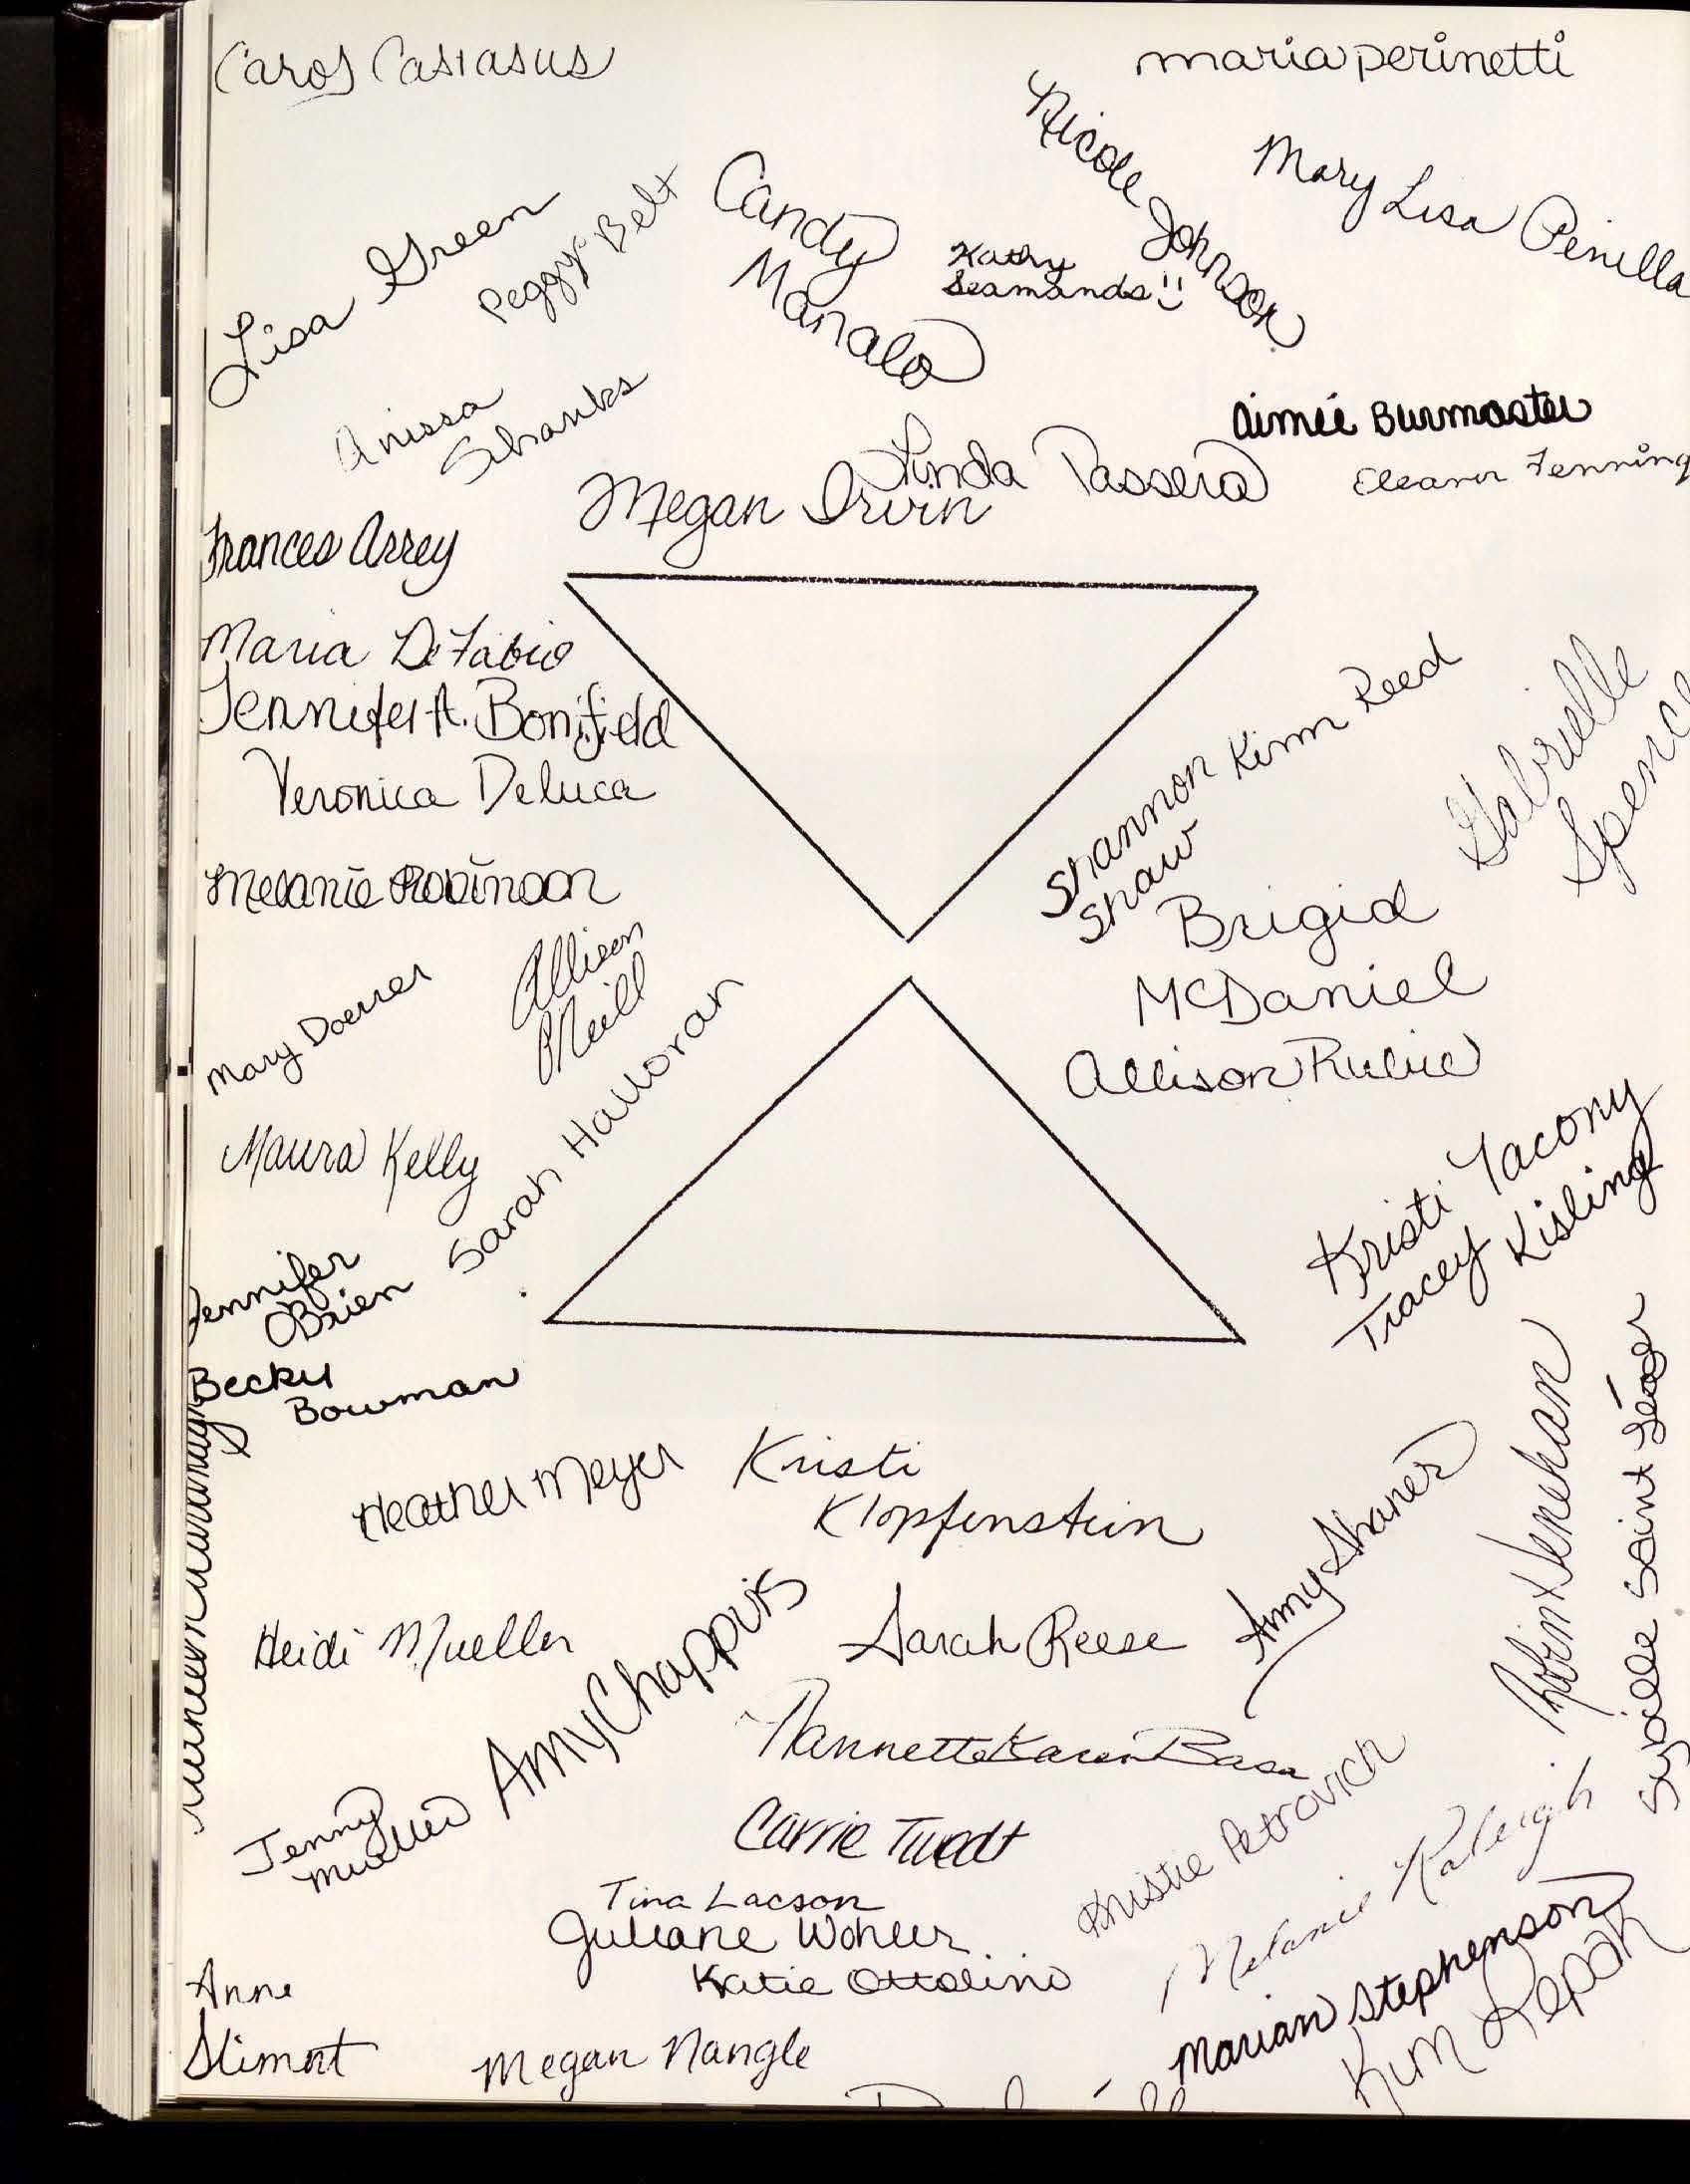 Carol Castasus
maria perinetti
Nicole Johnson
Mary Lisa Penilla
Lisa Green
Peggy Belt
Candy
Manalo
Kathy
Seamands
Anissa
Shanks
Aimée Burmaster
Eleanor Fenning
Linda Passero
Megan Irvin
Frances Arrey
Maria DiFabio
Jennifer A. Bonifield
Veronica Deluca
Shannon Kimm Reed
Shaw
Gabrielle
Spence
Melanie Robinson
Brigid
McDaniel
Allison Rubie
Mary Doerrer
Allison
O'Neill
Sarah Halloran
Maura Kelly
Kristi Yacony
Tracey Kisling
Jennifer
O'Brien
Becky
Bowman
Heather Meyer
Kristi
Klopfenstein
Amy Shaner
Robin Lenehan
Sybille Saint Léger
Heidi Mueller
Amy Chappuis
Sarah Reese
Nannette Karen Basa
Jenny
Mueller
Carrie Twedt
Kristie Petrovich
Melanie Raleigh
Tina Lacson
Juliane Wohler
Katie Ottolino
Marian Stephenson
Kim Repak
Anne
Slimnt
Megan Nangle